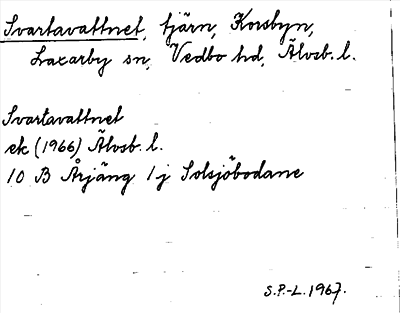 Svartavattnet, tjärn, Korsbyn,
Laxarby sn, Vedbo hd, Älvsb. l.
Svartavattnet
ek (1966) Älvsb. l.
10 B Årjäng 1j Solsjöbodane
S.P.-L. 1967.